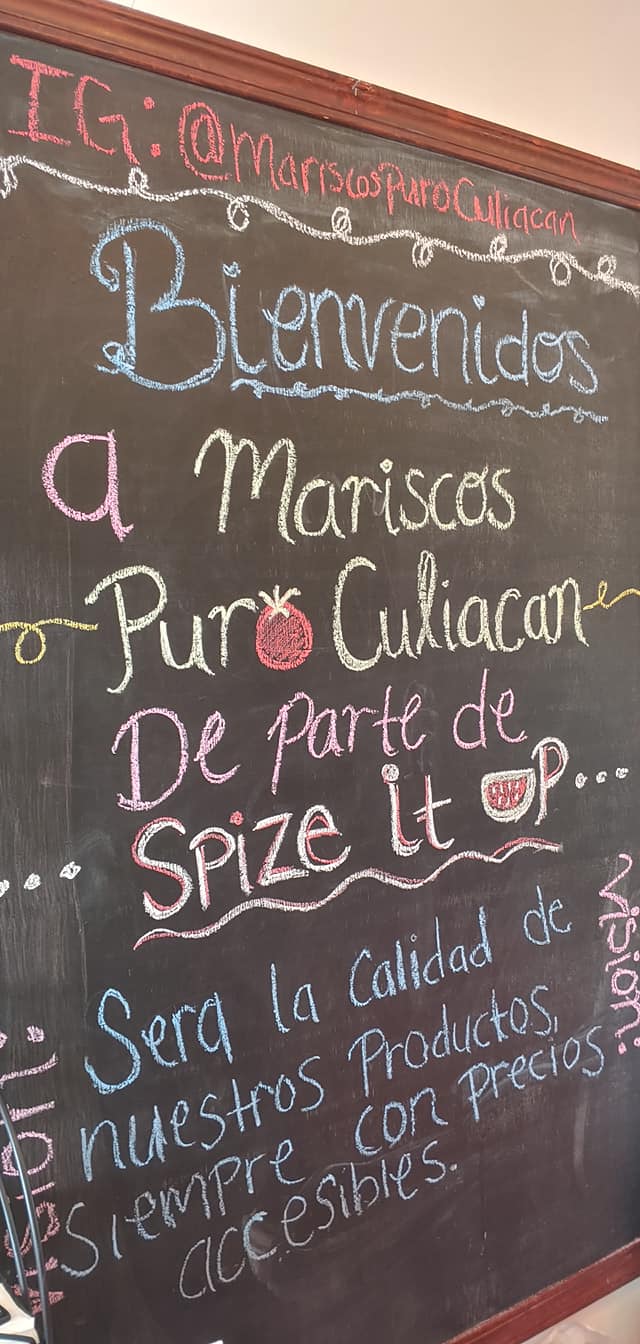 IG: @MariscosPuroCuliacan
Bienvenidos
a Mariscos
Puro Culiacan
De parte de
Spize it UP...
...
Sera la Calidad de
nuestros Productos,
siempre con precios
accesibles.
Vision: